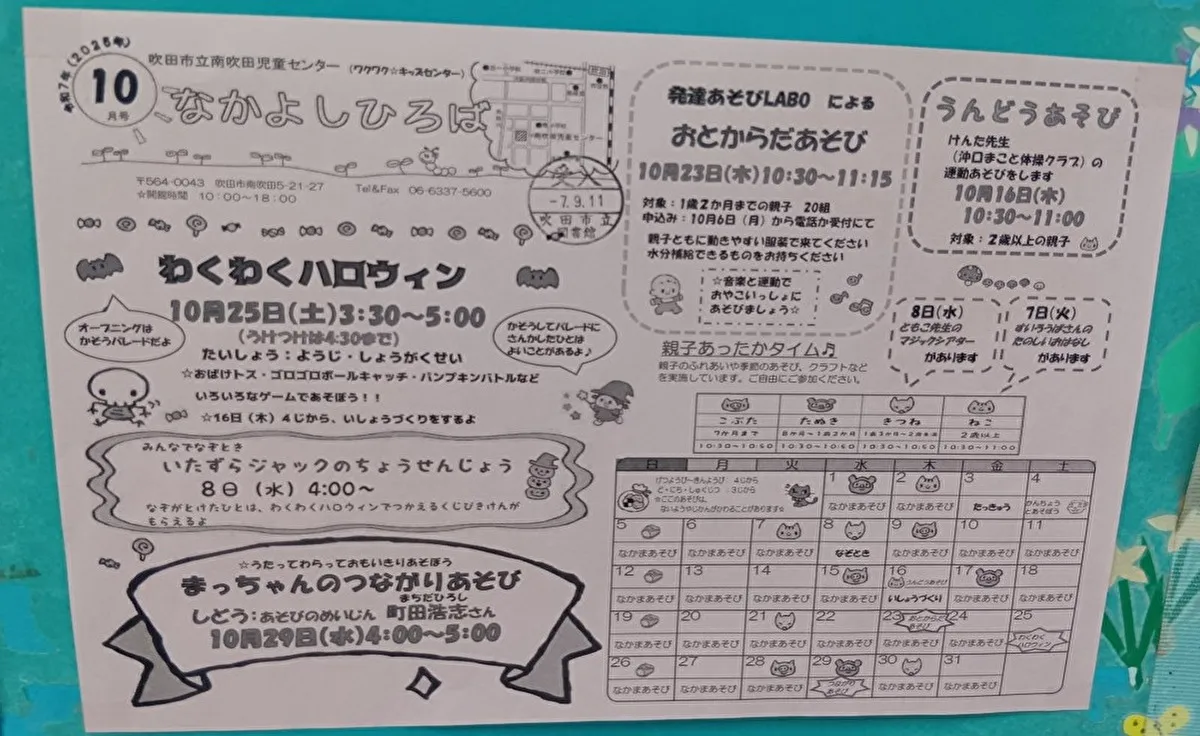 令和7年(2025年)
10
月号
吹田市立南吹田児童センター (ワクワク☆キッズセンター)
なかよしひろば
南吹田児童センター
〒564-0043 吹田市南吹田5-21-27 Tel&Fax 06-6337-5600
☆開館時間 10:00~18:00
-7.9.11
吹田市立
図書館
わくわくハロウィン
10月25日(土)3:30~5:00
(うけつけは4:30まで)
オープニングは
かそうパレードだよ
かそうしてパレードに
さんかしたひとは
よいことがあるよ♪
たいしょう:ようじ・しょうがくせい
☆おばけトス・ゴロゴロボールキャッチ・パンプキンバトルなど
いろいろなゲームであそぼう!!
☆16日(木)4じから、いしょうづくりをするよ
みんなでなぞとき
いたずらジャックのちょうせんじょう
8日(水)4:00~
なぞがとけたひとは、わくわくハロウィンでつかえるくじびきけんが
もらえるよ
☆うたってわらっておもいきりあそぼう
まっちゃんのつながりあそび
まちだひろし
しどう:あそびのめいじん 町田浩志さん
10月29日(水)4:00~5:00
発達あそびLABO による
おとからだあそび
10月23日(木)10:30~11:15
対象:1歳2か月までの親子 20組
申込み:10月6日(月)から電話か受付にて
親子ともに動きやすい服装で来てください
水分補給できるものをお持ちください
☆音楽と運動で
おやこいっしょに
あそびましょう☆
うんどうあそび
けんた先生
(沖口まこと体操クラブ)の
運動あそびをします
10月16日(木)
10:30~11:00
対象:2歳以上の親子
8日(水)
ともこ先生の
マジックシアター
があります
7日(火)
すいろうばさんの
たのしいおはなし
があります
親子あったかタイム♬
親子のふれあいや季節のあそび、クラフトなど
を実施しています。ご自由にご参加ください。
こぶた たぬき きつね ねこ
7か月まで 8か月~1歳2か月 1歳3か月~2歳未満 2歳以上
10:30~10:50 10:30~10:50 10:30~10:50 10:30~11:00
日 月 火 水 木 金 土
げつようび~きんようび 4じから
ど・にち・しゅくじつ :3じから
☆ここのあそびは、
ないようやじかんがかわることがあります☆
1 2 3 4
なかまあそび なかまあそび たっきゅう かんちょうとあそぼう
5 6 7 8 9 10 11
なかまあそび なかまあそび なかまあそび なぞとき なかまあそび なかまあそび なかまあそび
12 13 14 15 16 17 18
うんどうあそび
なかまあそび なかまあそび なかまあそび なかまあそび いしょうづくり なかまあそび なかまあそび
19 20 21 22 23 24 25
おとからだあそび わくわくハロウィン
なかまあそび なかまあそび なかまあそび なかまあそび なかまあそび なかまあそび
26 27 28 29 30 31
なかまあそび なかまあそび なかまあそび つながりあそび なかまあそび なかまあそび